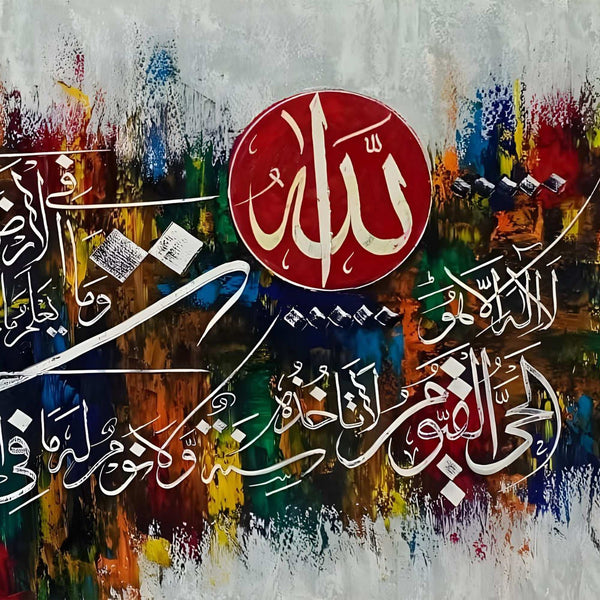 الله
لَا اِلٰهَ اِلَّا هُوَ
الْحَىُّ الْقَيُّوْمُ
لَا تَاْخُذُهٗ
سِنَةٌ وَّلَا نَوْمٌ لَهٗ مَا فِى
وَمَا فِى
يَعْلَمُ مَا